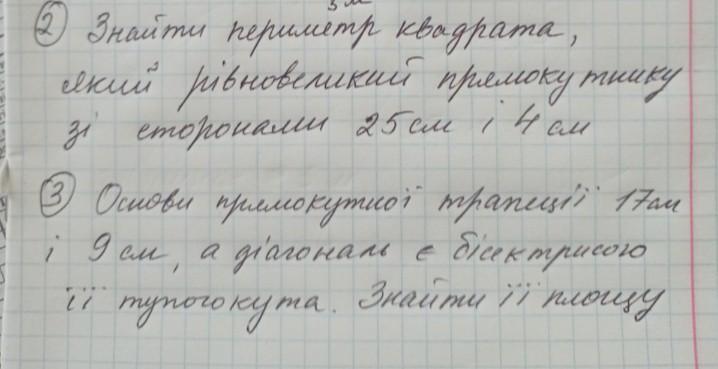 5 м
② Знайти периметр квадрата,
який рівновеликий прямокутнику
зі сторонами 25 см і 4 см
③ Основи прямокутної трапеції 17 см
і 9 см, а діагональ є бісектрисою
її тупого кута. Знайти її площу